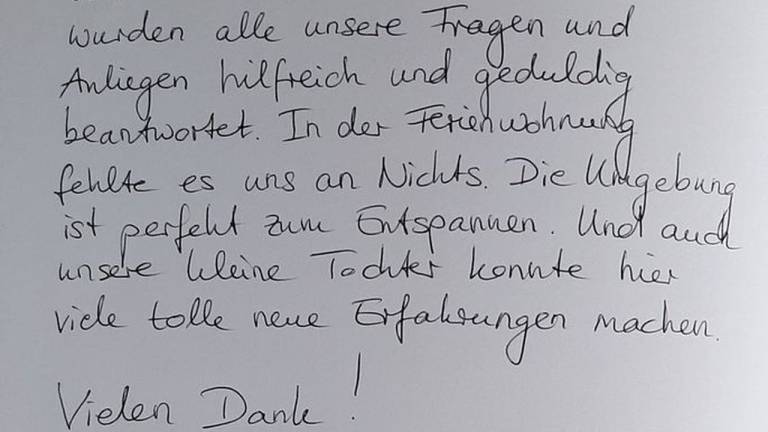 wurden alle unsere Fragen und
Anliegen hilfreich und geduldig
beantwortet. In der Ferienwohnung
fehlte es uns an Nichts. Die Umgebung
ist perfekt zum Entspannen. Und auch
unsere kleine Tochter konnte hier
viele tolle neue Erfahrungen machen.
Vielen Dank!